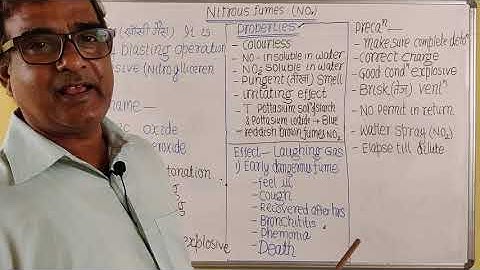 Nitrous fumes (NOx)
(खाँसी गैस) It is
blasting operation
osive (Nitroglliceren
name—
ic oxide
eroxide
tonation
explosive
Properties
- Colourless
- NO- insoluble in water
- NO2 Soluble in water
- Pungent (तीखा) Smell
- irritating effect
- T Pottasium solⁿ starch
& Pottasium iodide → Blue
- reddish brown fumes NO2
Effect - Laughing Gas
1) Early dangerous fume
- feel ill
- Cough
- Recovered after hrs
- Bronchititis
- Phemonia
- Death
Precaⁿ-
- Make sure complete detoⁿ
- Correct charge
- Good condⁿ explosive
- Brisk (तेज) ventⁿ
- No Permit in return
- Water Spray (NO2)
- Elapse till dilute